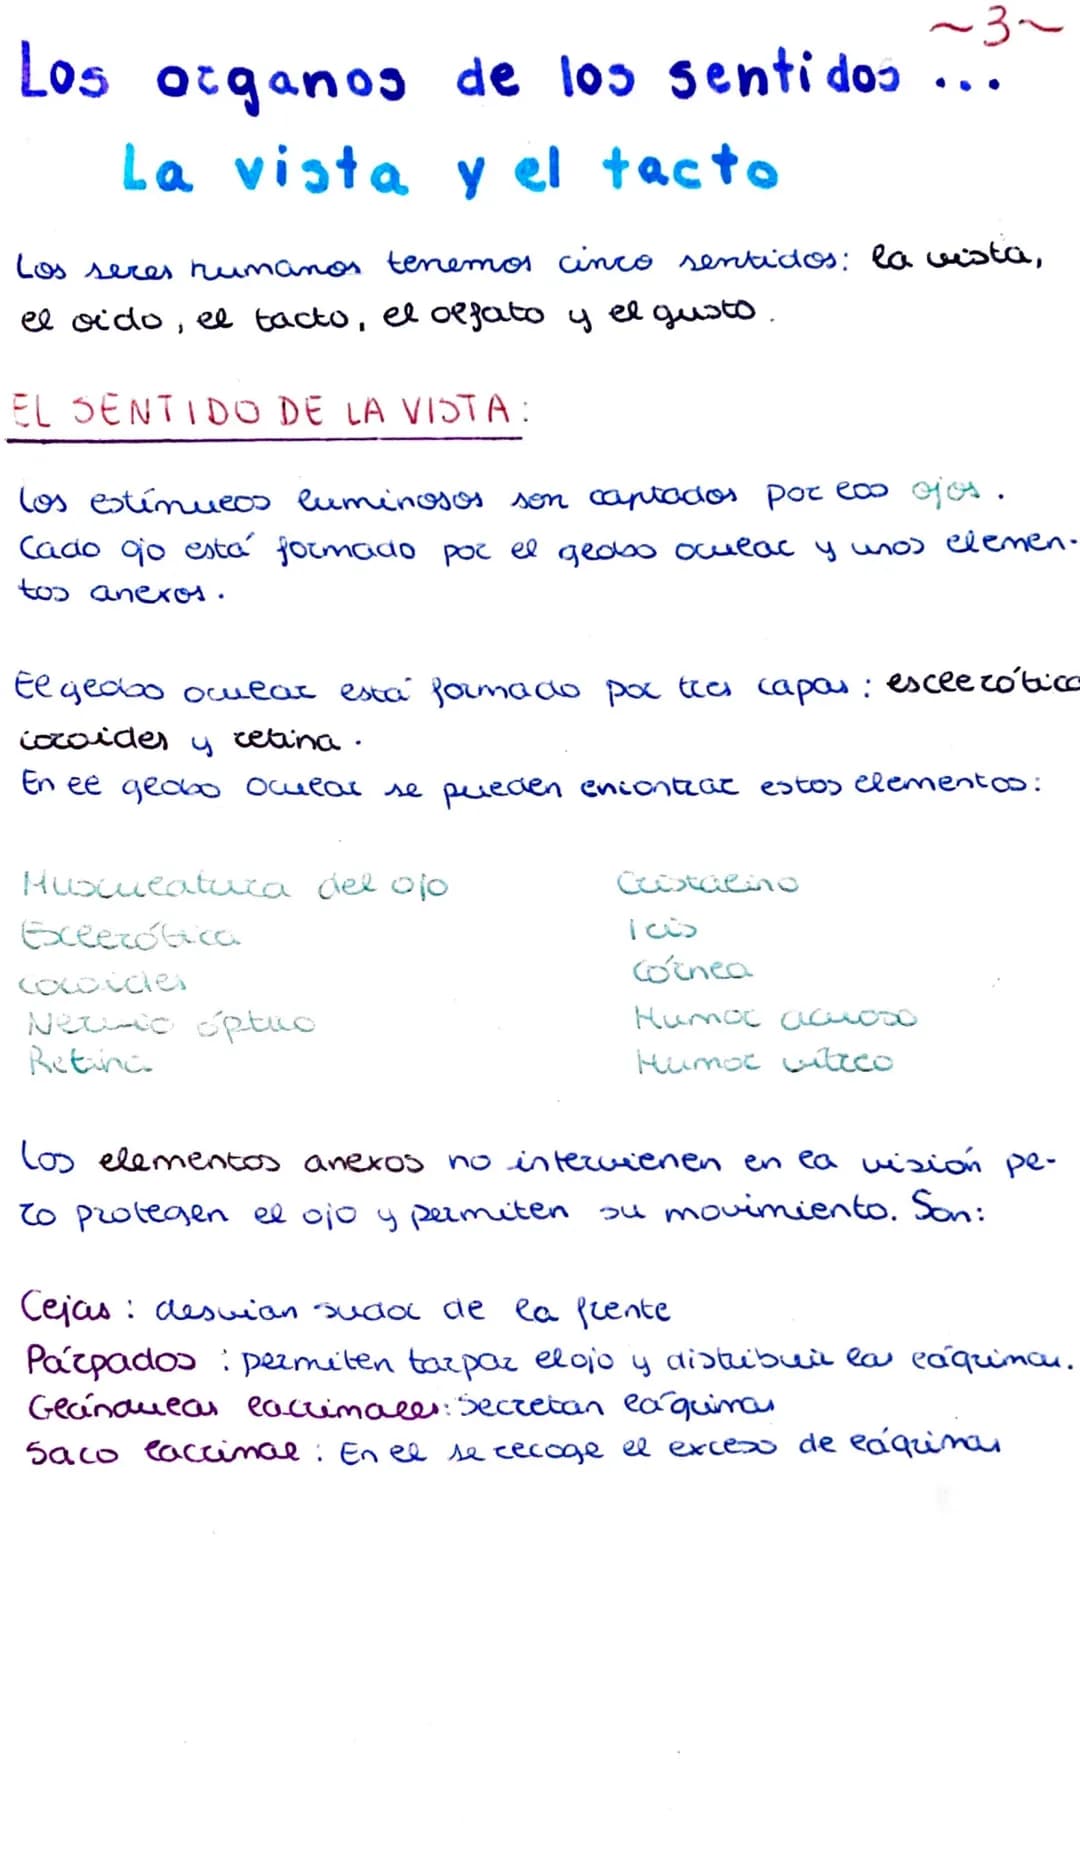 ~3~
Los organos de los sentidos ...
La vista y el tacto
Los seres humanos tenemos cinco sentidos: la vista,
el oido, el tacto, el olfato y el gusto.
EL SENTIDO DE LA VISTA:
Los estímulos luminosos son captados por los ojos.
Cado ojo está formado por el globo ocular y unos elemen-
tos anexos.
El globo ocular está formado por tres capas: esclerótica
coroides y retina.
En el globo ocular se pueden encontrar estos elementos:
Musculatura del ojo
Esclerótica
coroides
Nervio óptico
Retina
Cristalino
Iris
Córnea
Humor acuoso
Humor vítreo
Los elementos anexos no intervienen en la visión pe-
ro protegen el ojo y permiten su movimiento. Son:
Cejas: desvian sudor de la frente
Párpados: permiten tarpar el ojo y distribuir las lágrimas.
Glándulas lacrimales: Secretan lágrimas
Saco lacrimal: En el se recoge el exceso de lágrimas